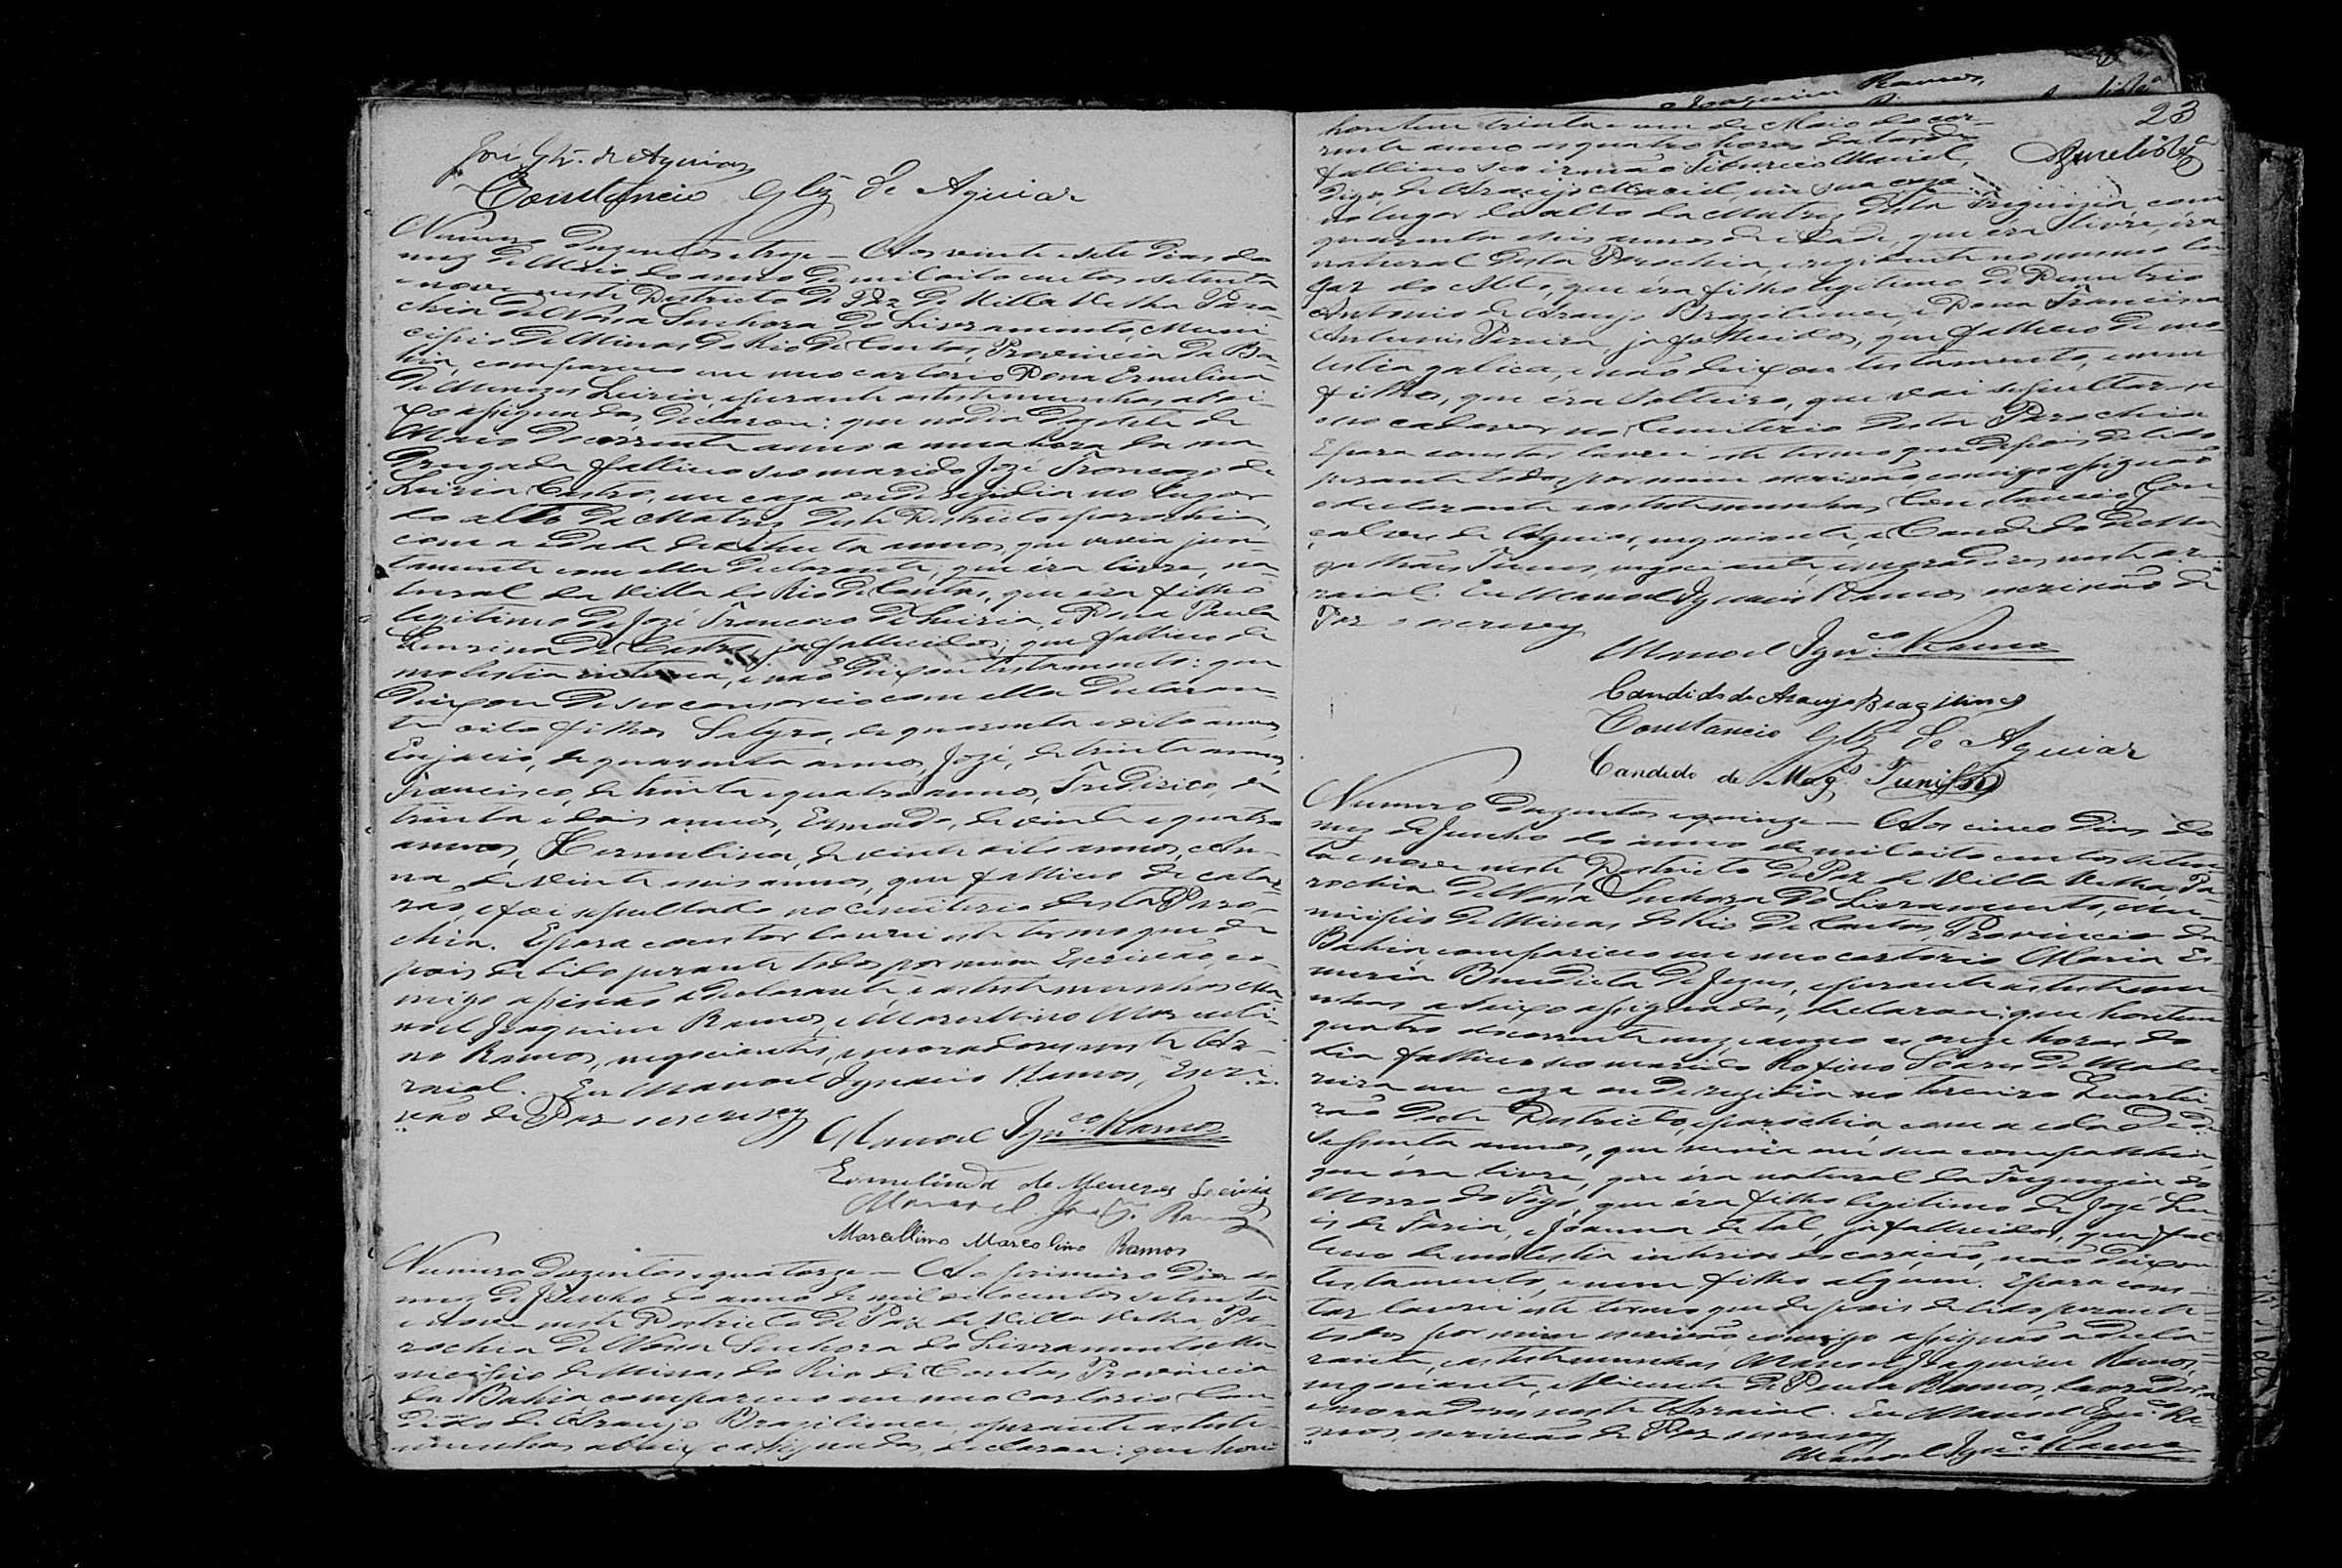 José Glz. de Aguiar
Constancio Glz de Aguiar
Numero duzentos e treze — Aos vinte e sete dias do
mez de Maio do anno de mil oito centos e setenta
e nove neste Districto de Paz de Villa Velha Paro-
chia de Nossa Senhora do Livramento, Muni-
cipio de Minas do Rio de Contas, Provincia da Ba-
hia, compareceo em meo cartorio Dona Ermelina
de Menezes Leiria, e perante as testemunhas abai-
xo assignadas, declarou: que no dia dezesete de
Maio do corrente anno a uma hora da ma-
drugada falleceo seo marido Jozé Francisco de
Leiria Castro, em caza onde rezidia no lugar
do alto da Matriz deste Districto e parochia,
com a idade de setenta annos, que vivia jun-
tamente com ella declarante, que éra livre, na-
tural da Villa do Rio de Contas, que éra filho
legitimo de Jozé Francisco de Leiria, e Dona Paula
de Castro, ja fallecidos; que falleceo de
molestia interna, e não deixou testamento: que
deixou de seo consorcio com ella declaran-
te oito filhos Satyro, de quarenta e oito annos,
de quarenta annos, Jozé, de trinta annos,
Francisco, de trinta e quatro annos, Frederico, de
trinta e dois annos, de vinte e quatro
annos, Hermelina, de vinte oito annos, e An-
na, de vinte e seis annos, que falleceo de
e foi sepultado no cimiterio desta Paro-
chia. E para constar lavrei este termo que de-
pois de lido perante todos por mim Escrivão, co-
migo assignão a declarante, e as testemunhas Ma-
noel Joaquim Ramos, e Marcellino Marcoli-
no Ramos, negociantes, e moradores neste Ar-
raial. Eu Manoel Ignacio Ramos, Escri-
vão de Paz o escrevy
Manoel Ignco. Ramos
Ermelinda de Menezes Leiria
Manoel Joaqm. Ramos
Marcellino Marcolino Ramos
Numero duzentos e quatorze — Ao primeiro dia do
mez de Junho do anno de mil oitocentos setenta
e nove neste Districto de Paz de Villa Velha, Pa-
rochia de Nossa Senhora do Livramento, Mu-
nicipio de Minas do Rio de Contas Provincia
da Bahia compareceo em meo cartorio Can-
dido de Araujo Brasiliense, e perante as teste-
munhas abaixo assignadas, declarou: que hon
23
hontem trinta e um de Maio do cor-
rente anno as quatro horas da tarde
falleceo seo irmão Tiburcio Maciel,
digo, de Araujo Maciel, em sua caza
no lugar do alto da Matriz desta Freguezia com
quarenta e seis annos de idade, que éra livre, éra
natural desta Parochia, e rezidente no mesmo lu-
gar do Alto, que éra filho legitimo de Demetrio
Antonio de Araujo Brasiliense, e Dona Francisca
Antunes Pereira, ja fallecidos, que falleceo de mo-
lestia galica, e não deixou testamento, e nem
filhos, que éra Solteiro, que vai sepultar-se
seo cadaver no Cemiterio desta Parochia
E para constar lavrei este termo que depois de lido
perante todos por mim escrivão comigo assignão
o declarante e as testemunhas, Constancio Gon-
çalves de Aguiar, negociante, e Candido de Ma-
galhães Tunes, negociante, e moradores neste ar-
raial. Eu Manoel Ignacio Ramos escrivão de
Paz o escrevy
Manoel Ignco. Ramos
Candido de Araujo Brasiliense
Constancio Glz de Aguiar
Candido de Mags. Tunes
Numero duzentos e quinze — Aos cinco dias do
mez de Junho do anno de mil oito centos seten-
ta e nove neste Districto de Paz de Villa Velha, Pa-
rochia de Nossa Senhora do Livramento, Mu-
nicipio de Minas do Rio de Contas, Provincia da
Bahia compareceo em meo cartorio Maria Es-
meria Benedicta de Jezus, e perante as testemu-
nhas abaixo assignadas, declarou; que hontem
quatro do corrente mez e anno as onze horas do
dia falleceo seo marido Rofino Soares de Madu-
reira em caza onde rezidia no terceiro Quartei-
rão deste Districto, e parochia, com a idade de
sessenta annos, que vivia em sua companhia,
que éra livre, que éra natural da Freguezia do
Morro do Fogo, que éra filho legitimo de Jozé Lu-
is de Faria, e Joanna de tal, ja fallecidos, que fal-
leceo de molestia interior do coração, não deixou
testamento, e nem filho algum. E para cons-
tar lavrei este termo que depois de lido perante
todos por mim escrivão comigo assignão a decla-
rante, e as testemunhas Manoel Joaquim Ramos,
negociante, e Vicente de Paula Ramos, lavrador,
e moradores neste Arraial. Eu Manoel Ignco. Ra-
mos, escrivão de Paz o escrevy
Manoel Ignco. Ramos